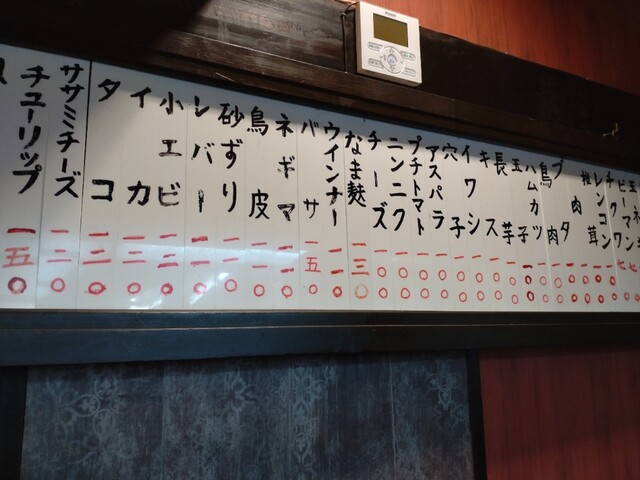 ピーマン
チクワ
レンコン
椎茸
ブタ肉
鳥肉
ハムカツ
玉子 一〇〇
長芋 一〇〇
キス 一〇〇
イワシ 一〇〇
穴子 一〇〇
アスパラ 一〇〇
プチトマト 一〇〇
ニンニク 一〇〇
チーズ 一〇〇
なま麩 一三〇
ウインナー 一二〇
バサ 一五〇
ネギマ 一一〇
鳥皮 一一〇
砂ずり 一一〇
レバー 一一〇
小エビ 一二〇
イカ 一二〇
タコ 一二〇
ササミチーズ 一二〇
チューリップ 一五〇